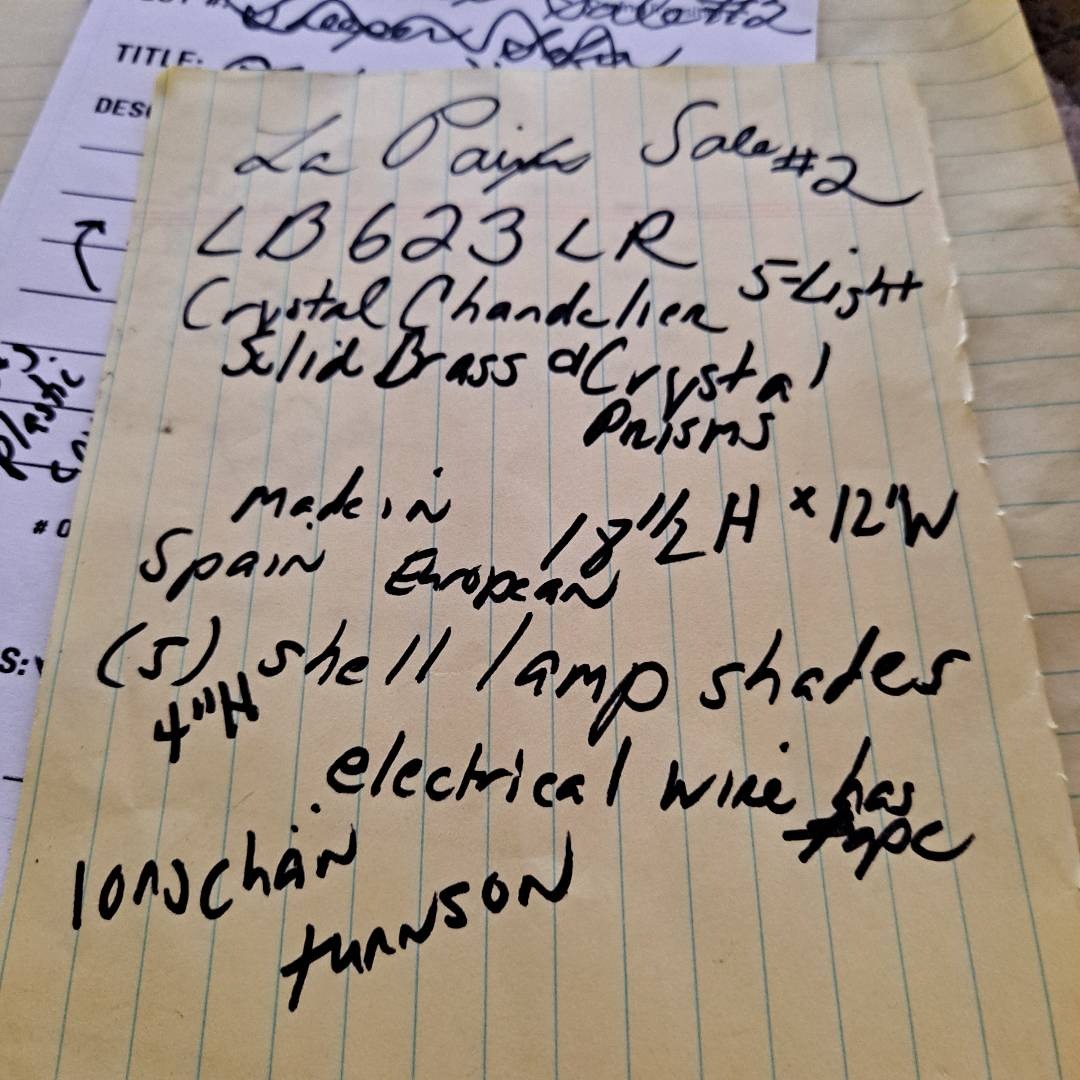 Sale #2
TITLE:
DESC
La Sale #2
LB 623 LR
Crystal Chandelier 5-Light
Solid Brass & Crystal
Prisms
made in
Spain European 18"1/2 H x 12"W
(5) shell lamp shades
4"H
electrical wire has
tape
long chain
turnson
Plastic
# O
S: